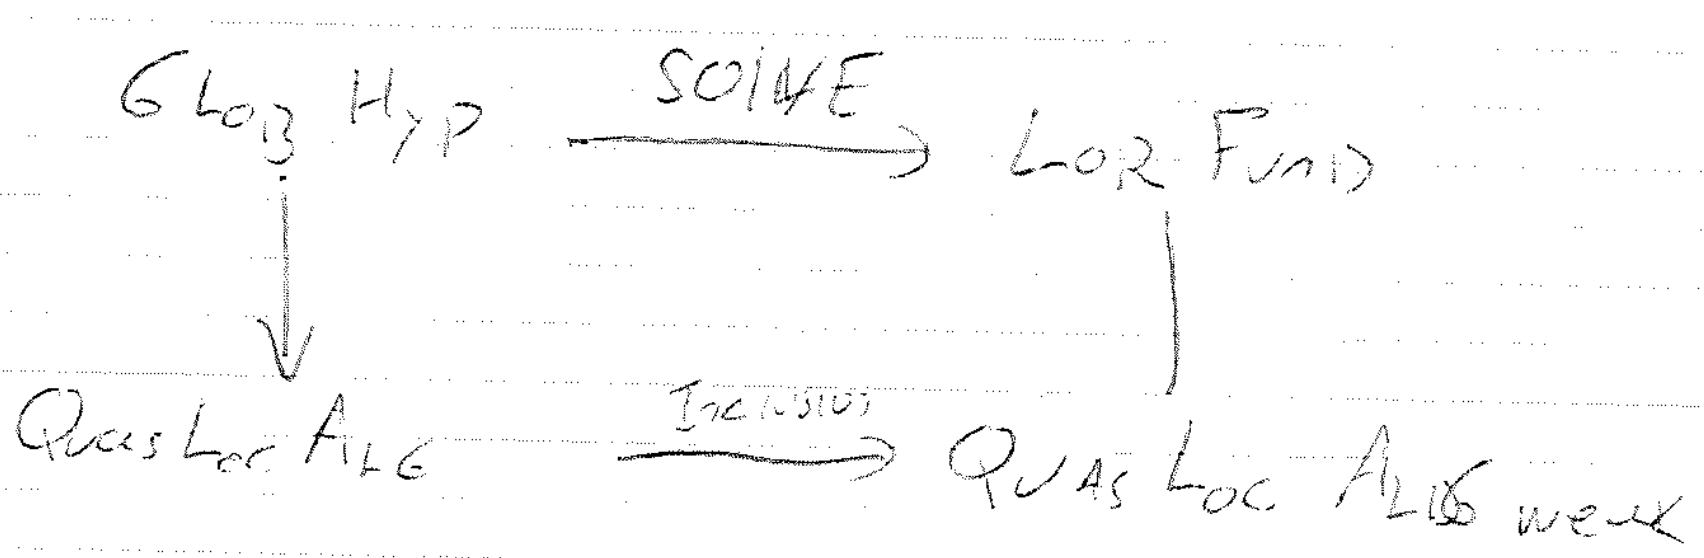 GLOB HYP SOLVE LOR FUND
QUAS LOC ALG INCLUSION QUAS LOC ALG weak